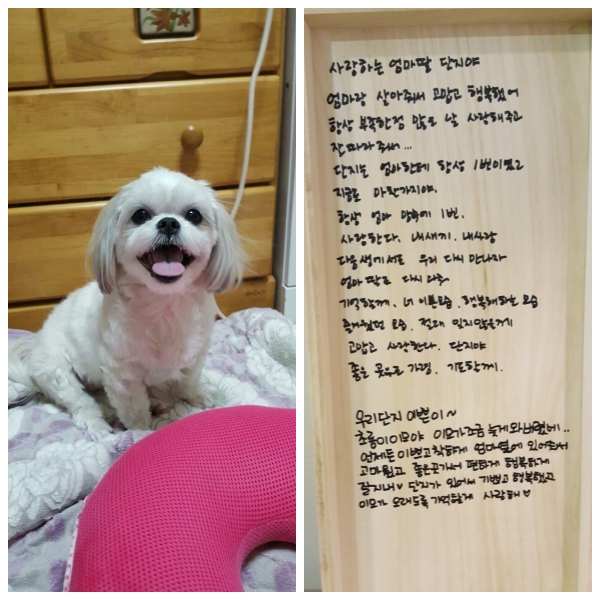 사랑하는 엄마딸 단지야
엄마랑 살아줘서 고맙고 행복했어
항상 부족한점 많은 날 사랑해주고
잘 따라줘서...
단지는 엄마한테 항상 1번이였고
지금도 마찬가지야.
항상 엄마 맘속에 1번.
사랑한다. 내새끼. 내사랑
다음생에서도 우리 다시 만나자
엄마 딸로 다시 와줘
기억할께. 너 이쁜모습, 행복해하는 모습
즐거웠던 모습. 절대 잊지않을께
고맙고 사랑한다. 단지야
좋은 곳으로 가렴. 기도할께.
우리단지 이쁜이~
초롱이이모야 이모가조금 늦게와버렸네..
언제든 이쁘고착하게 엄마옆에 있어줘서
고마웠고 좋은곳가서 편하게 행복하게
잘지내♡ 단지가 있어서 기쁘고 행복했고
이모가 오래도록 기억할게 사랑해♡